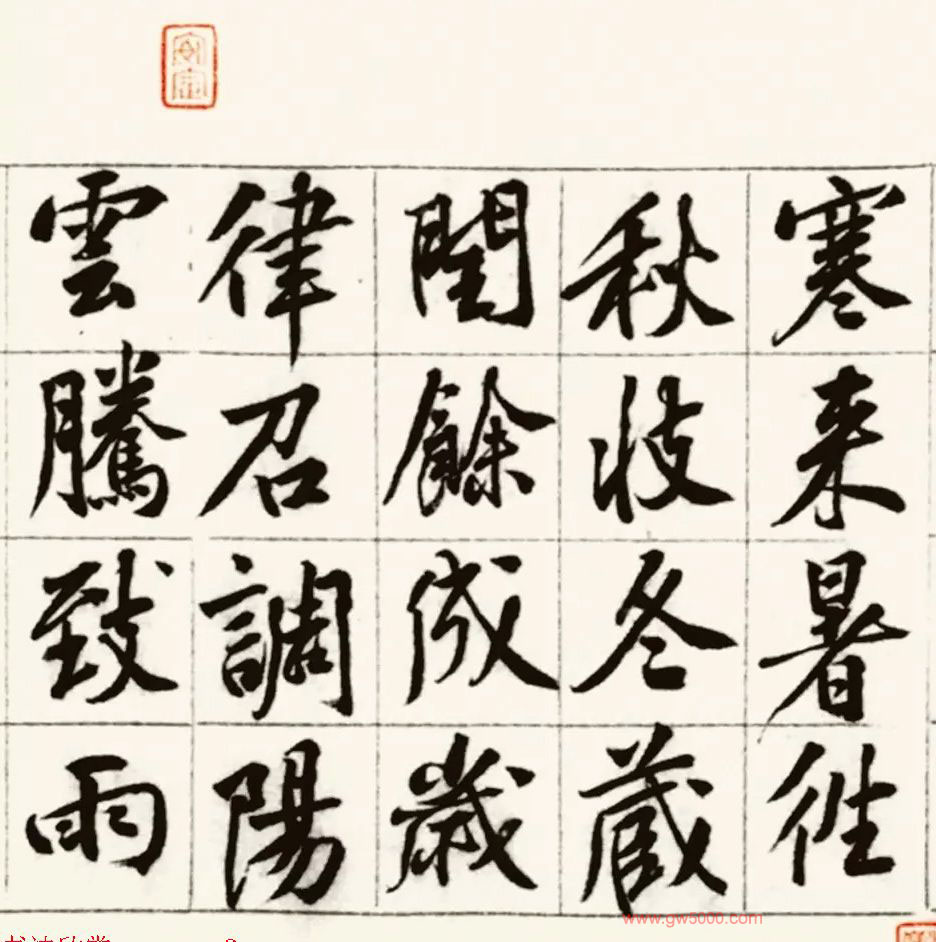 寒来暑往
秋收冬藏
閏餘成歲
律召調陽
雲騰致雨
www.gw5000.com